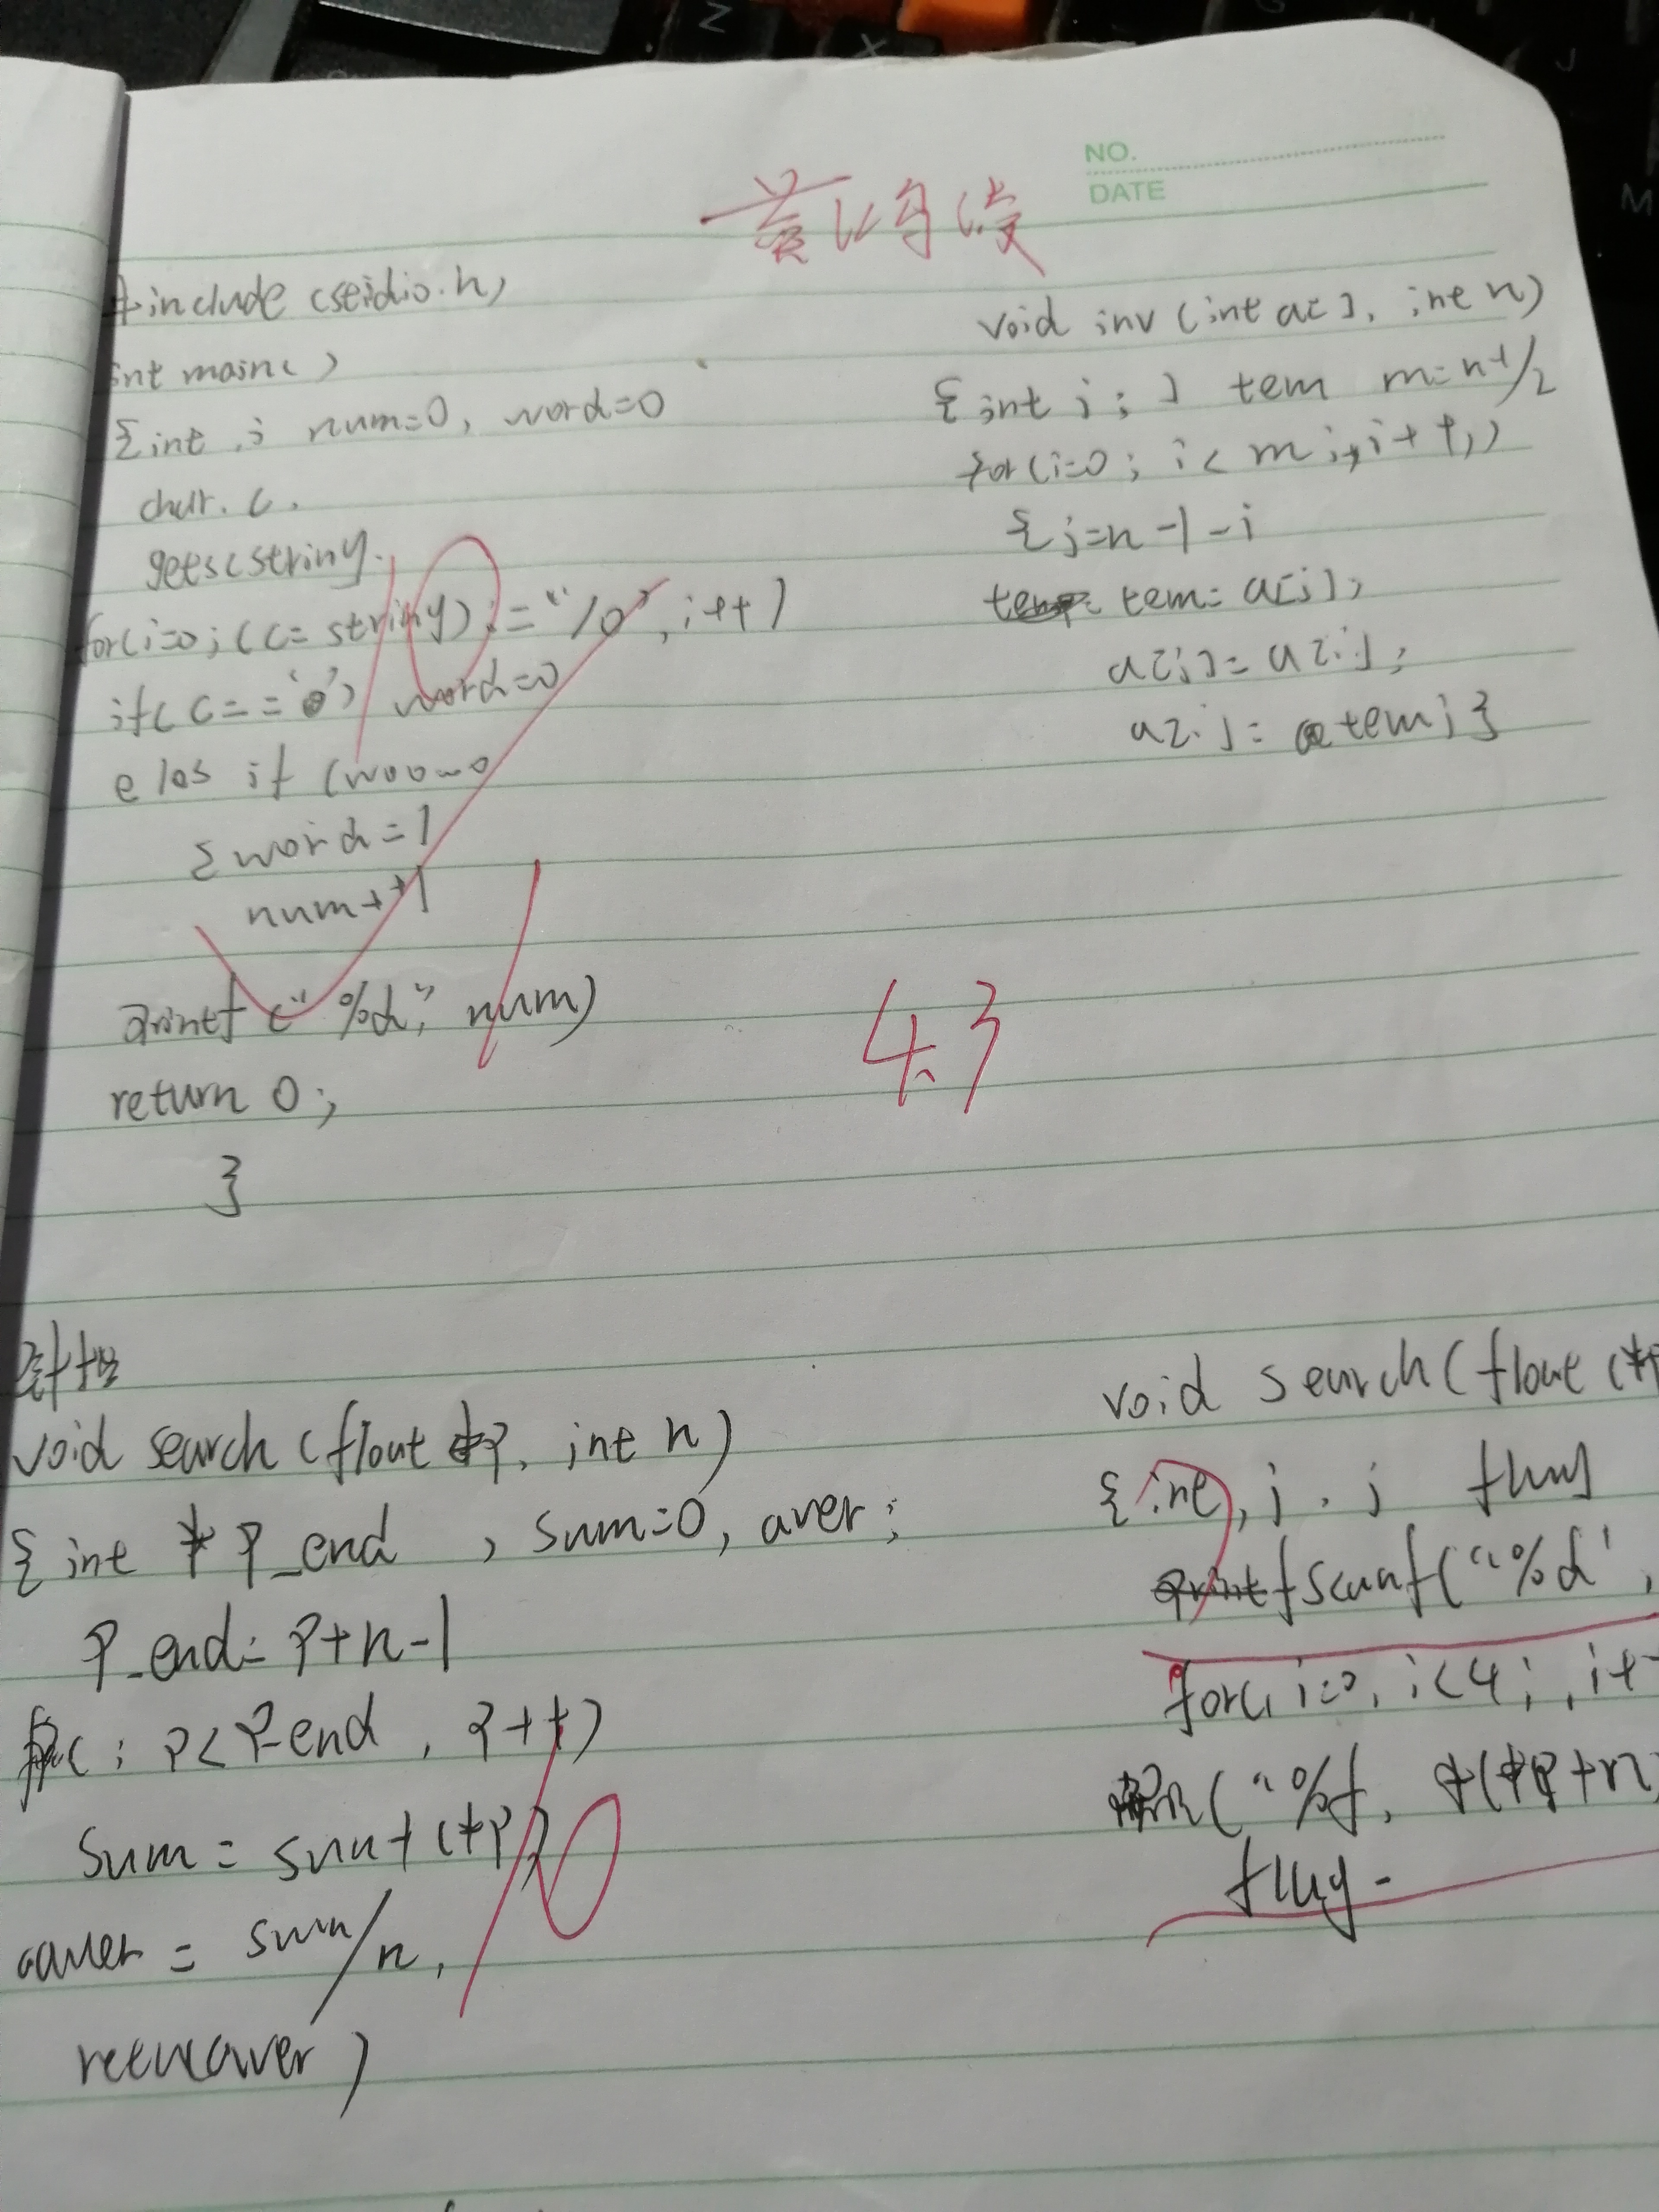 NO.
DATE
#include (stidio.h)
int main( )
{int i num=0, word=0
char. c.
gets(string.
for(i=0; (c= string) != "\0", i++)
if( c==' ') word=0
elas if (
{word=1
num++
printf ("%d", num)
return 0;
}
void inv (int a[], int n)
{int i; j tem m=n-1/2
for(i=0; i< m; i++;)
{j=n-1-i
tem= a[i];
a[i]= a[j];
a[j]= tem; }
43
void search (flout *p, int n)
{int *p_end , sum=0, aver;
p_end= p+n-1
for( ; p<p-end , p++)
sum = sum+ (*p)
aaver = sum/n,
aver )
void search ( flout (*p
{int, j . j flag
scanf( "%d" ,
for(, i=0, i<4; , i+
("%f, *(*p+n)
flag -